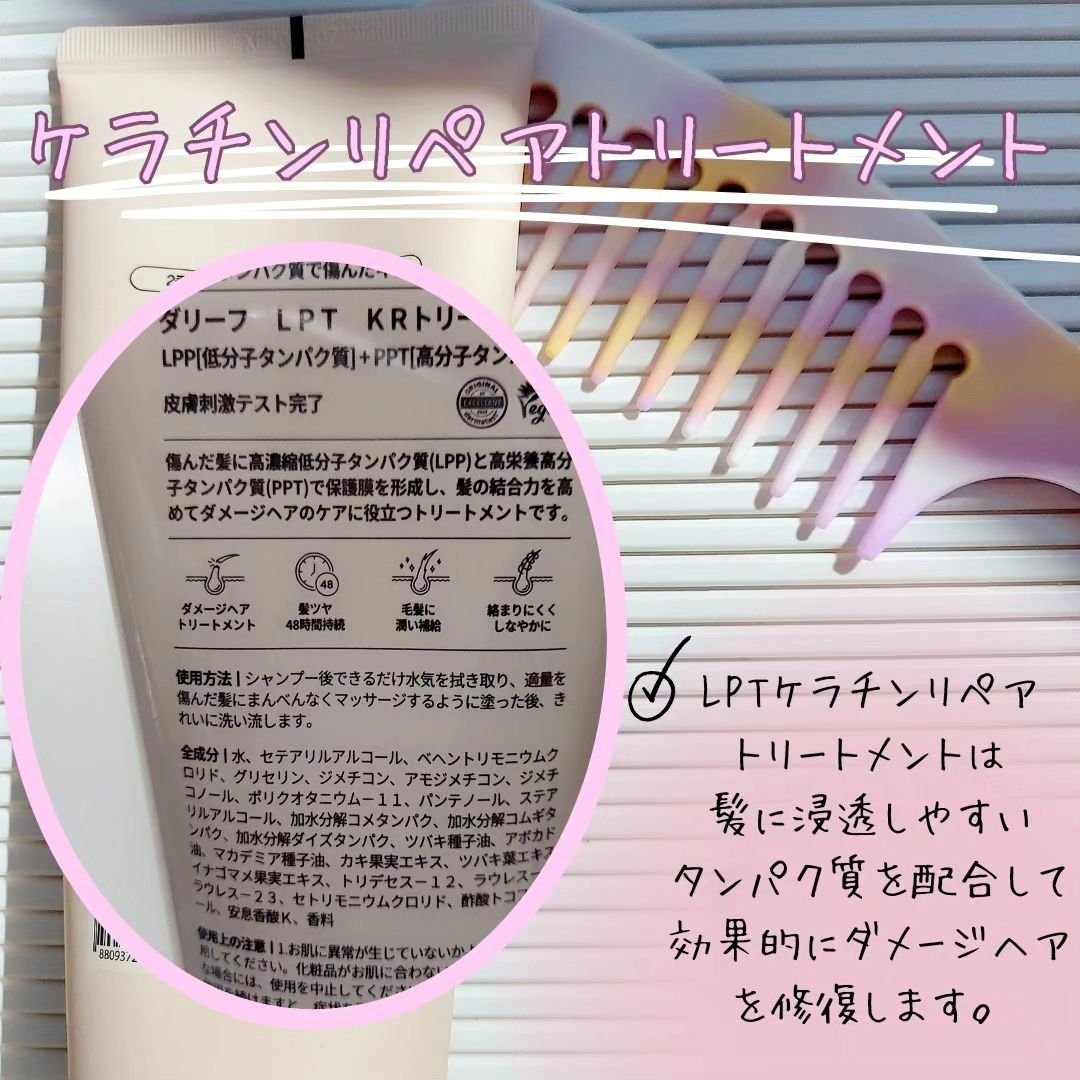 ケラチンリペアトリートメント
ンパク質で傷んだ
ダリーフ LPT KRトリー
LPP[低分子タンパク質]+PPT[高分子タン
皮膚刺激テスト完了
ORIGINAL
EXCELLENT
dermatest
傷んだ髪に高濃縮低分子タンパク質(LPP)と高栄養高分
子タンパク質(PPT)で保護膜を形成し、髪の結合力を高
めてダメージヘアのケアに役立つトリートメントです。
48
ダメージヘア
トリートメント
髪ツヤ
48時間持続
毛髪に
潤い補給
絡まりにくく
しなやかに
使用方法 | シャンプー後できるだけ水気を拭き取り、適量を
傷んだ髪にまんべんなくマッサージするように塗った後、き
れいに洗い流します。
全成分 | 水、セテアリルアルコール、ベヘントリモニウムク
ロリド、グリセリン、ジメチコン、アモジメチコン、ジメチ
コノール、ポリクオタニウム－11、パンテノール、ステア
リルアルコール、加水分解コメタンパク、加水分解コムギタ
ンパク、加水分解ダイズタンパク、ツバキ種子油、アボカド
油、マカデミア種子油、カキ果実エキス、ツバキ葉エキス
イナゴマメ果実エキス、トリデセス－12、ラウレス－
ラウレス－23、セトリモニウムクロリド、酢酸トコフ
ール、安息香酸K、香料
使用上の注意 | 1.お肌に異常が生じていないかよ
用してください。化粧品がお肌に合わない
な場合には、使用を中止してください
880937
LPTケラチンリペア
トリートメントは
髪に浸透しやすい
タンパク質を配合して
効果的にダメージヘア
を修復します。